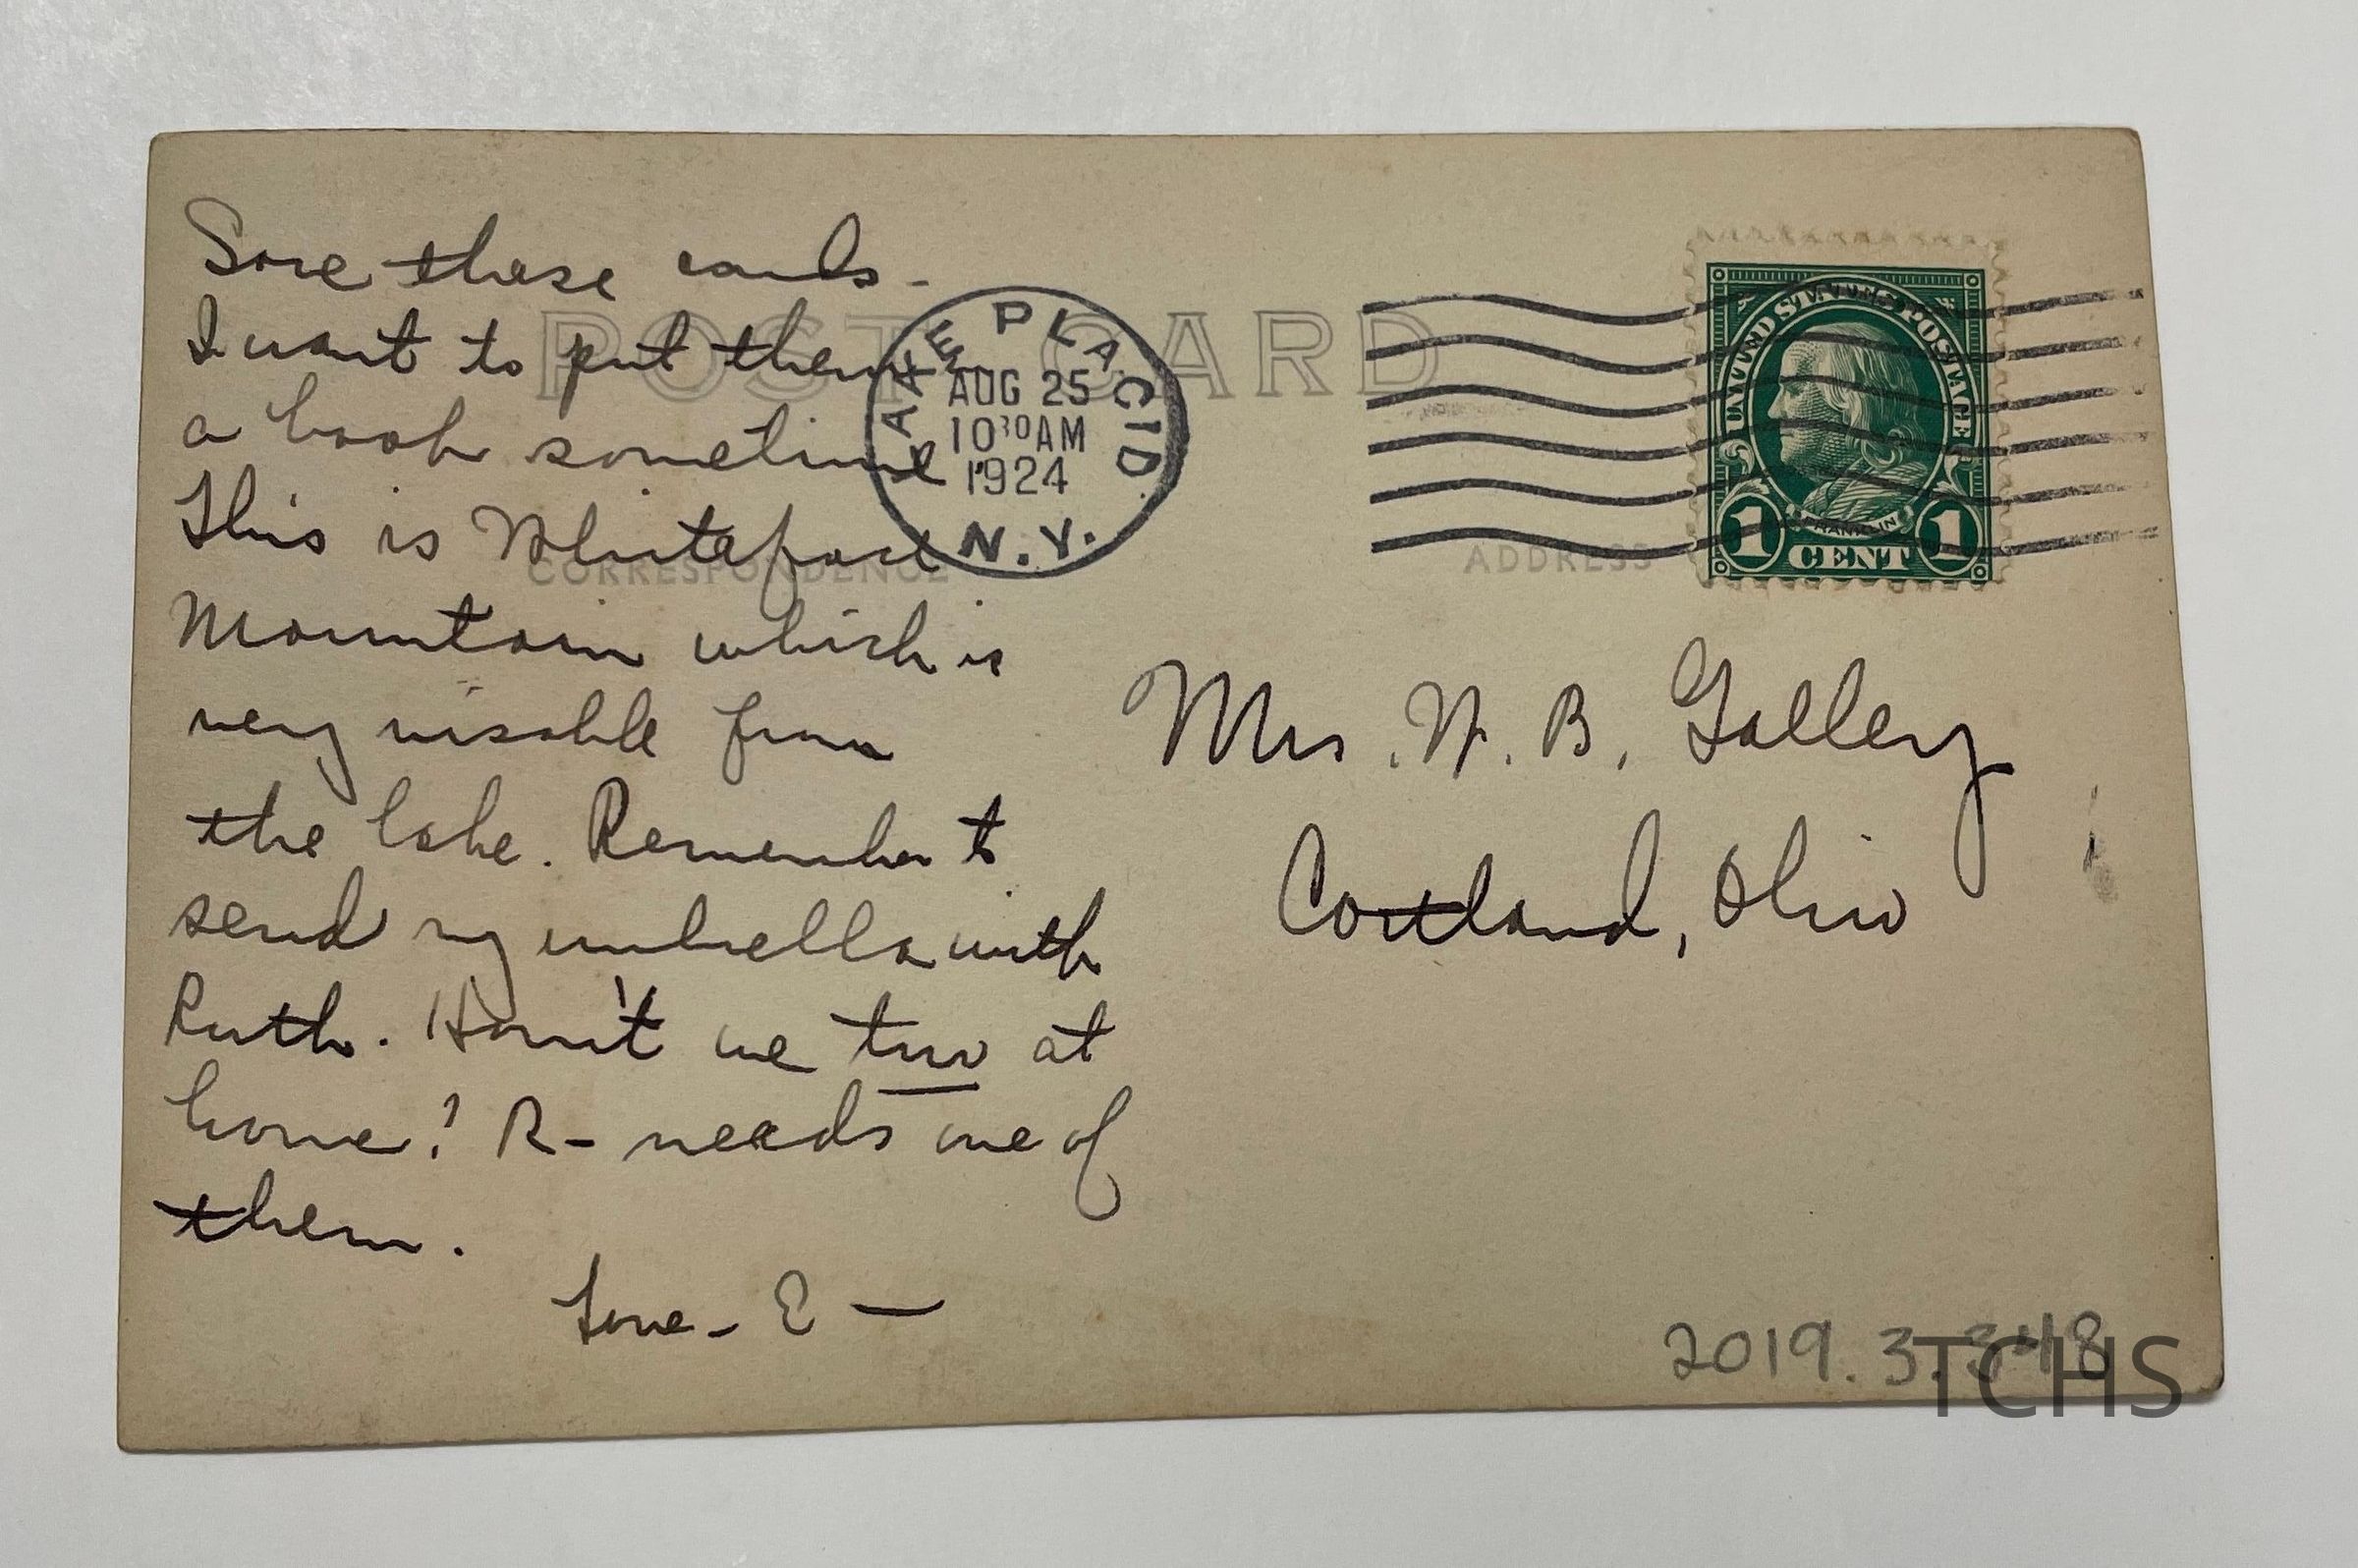 Save these cards -
I want to put them in
a book sometime.
This is Whiteface
Mountain which is
very visable from
the lake. Remember to
send my umbrella with
Ruth. Havn't we two at
home? R- needs one of
them.
Love - E —
POST CARD
CORRESPONDENCE
ADDRESS
LAKE PLACID
AUG 25
10 30 AM
1924
N.Y.
UNITED STATES POSTAGE
FRANKLIN
1 CENT 1
Mrs. W. B. Galley
Cortland, Ohio
2019.3.348
TCHS